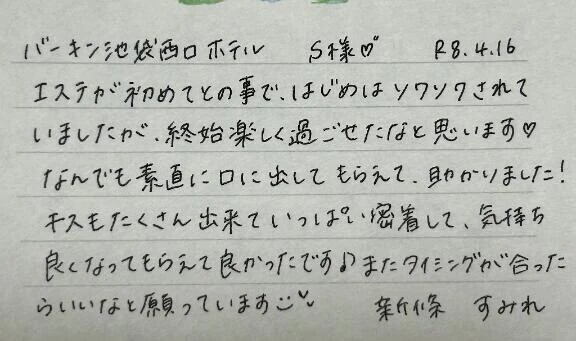 バーキン池袋西口ホテル S様♡ R8.4.16
エステが初めてとの事で、はじめはソワソワされて
いましたが、終始楽しく過ごせたなと思います♡
なんでも素直に口に出してもらえて、助かりました！
キスもたくさん出来ていっぱい密着して、気持ち
良くなってもらえて良かったです♪またタイミングが合った
らいいなと願っています 新條 すみれ